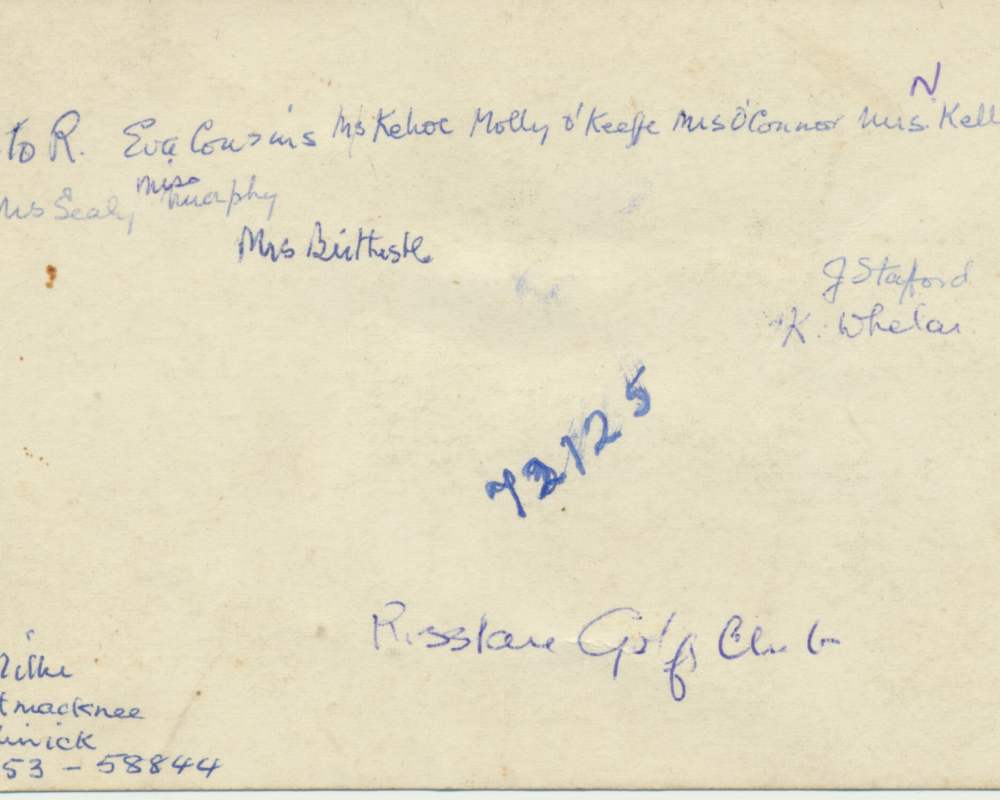 N
to R. Eva Cousins Ms Kehoe Molly O'Keeffe Mrs O'Connor Mrs. Kell
Ms Sealy Miss Murphy
Mrs Birthistle
J Staford
K. Whelan
72125
Risslare Golf Club
tmacknee
inick
53 - 58844